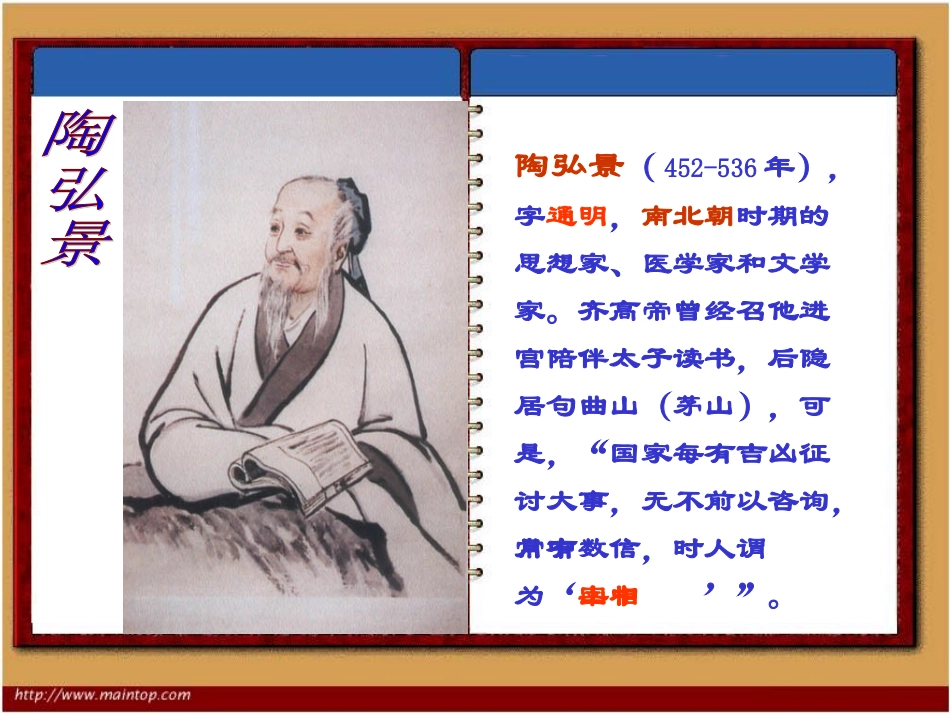 陶弘景
陶弘景（452-536年），
字通明，南北朝时期的
思想家、医学家和文学
家。齐高帝曾经召他进
宫陪伴太子读书，后隐
居句曲山（茅山），可
是，“国家每有吉凶征
讨大事，无不前以咨询，
数信，时人谓
为‘ ’”。
http://www.maintop.com